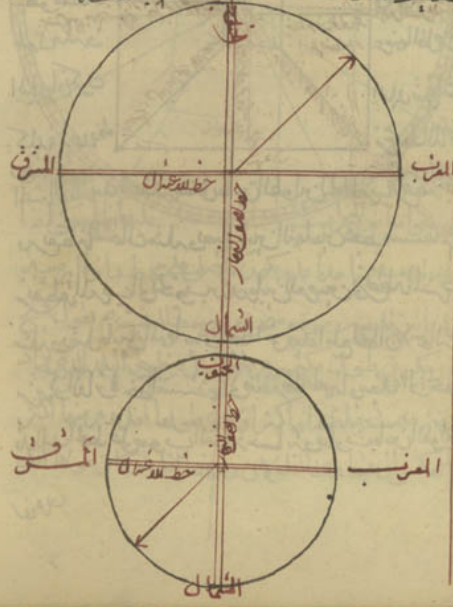 الجنوب
المشرق
المغرب
خط الاعتدال
خط نصف النهار
الشمال
الجنوب
خط نصف النهار
المشرق
المغرب
خط الاعتدال
الشمال